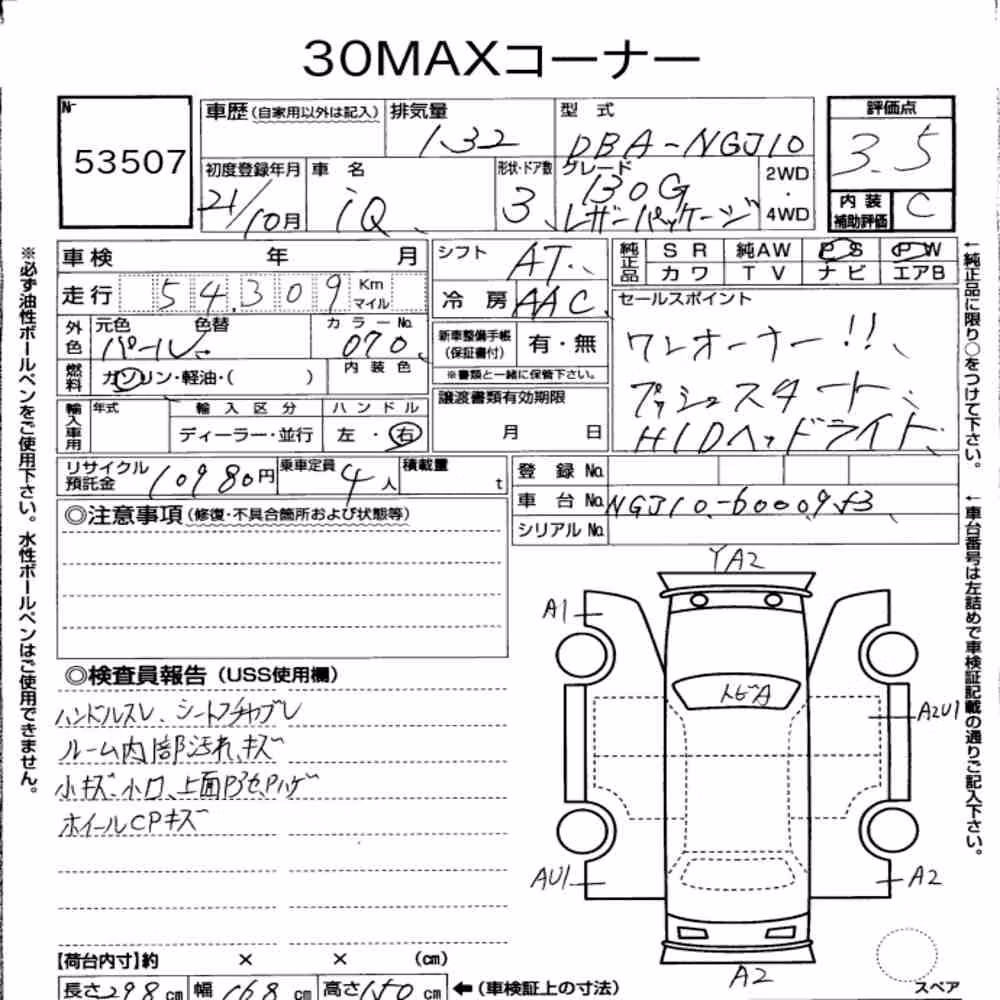 30MAXコーナー
No.
53507
車歴(自家用以外は記入)
排気量
1.32
型 式
DBA-NGJ10
評価点
3.5
初度登録年月
21/10月
車 名
iQ
形状・ドア数
3
グレード
130G
レザーパッケージ
2WD
・
4WD
内 装
補助評価
C
車検 年 月
走行 54,309 Km
マイル
シフト AT
冷 房 AAC
純正品
SR 純AW PS PW
カワ TV ナビ エアB
外色
元色 色替
パール
カラーNo.
070
燃料
ガソリン・軽油・( )
内 装 色
新車整備手帳
(保証書付)
有・無
※書類と一緒に保管下さい。
セールスポイント
ワンオーナー!!
プッシュスタート
HIDヘッドライト
輸入車用
年式
輸 入 区 分
ディーラー・並行
ハ ン ド ル
左 ・ 右
譲渡書類有効期限
月 日
リサイクル
預託金
10980円
乗車定員
4人
積載量
t
登 録 No.
車 台 No. NGJ10-6000953
シリアル No.
◎注意事項(修復・不具合箇所および状態等)
◎検査員報告(USS使用欄)
ハンドルスレ、シートフチヤブレ
ルーム内部汚れ、キズ
小キズ、小凹、上面
ホイールCPキズ
YA2
A1
トビA
A2U1
AU1
A2
A2
スペア
【荷台内寸】約 × × (cm)
長さ298cm 幅168cm 高さ150cm ←(車検証上の寸法)
※必ず油性ボールペンをご使用下さい。水性ボールペンはご使用できません。
←純正品に限り○をつけて下さい。
←車台番号は左詰めで車検証記載の通りご記入下さい。